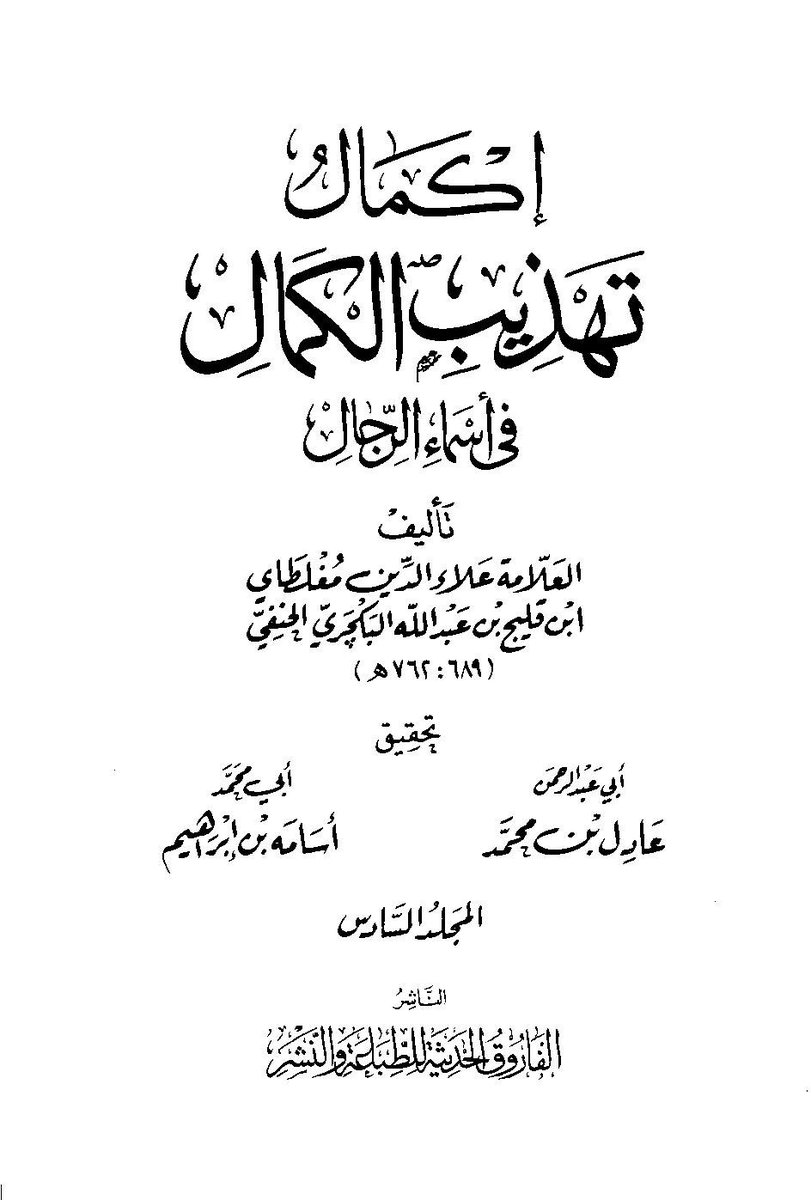 إكمالُ
تهَذِيبِ الكَمَالِ
في أسْمَاءِ الرِّجَالِ
تَأليفْ
العَلّامة عَلاء الدِّين مُغْلَطاي
ابْن قليج بْن عَبْد الله البَكْجَريّ الحَنِفيّ
(٦٨٩ : ٧٦٢ هـ)
تحقِيق
أبي عَبْد الرحمن
عَادِل بْن محمَّد
أبي محمَّد
أسَامَه بْن إبْرَاهيم
المجَلد السَّادس
النَّاشِرُ
الفَارُوقُ الحَديثَة للطِّبَاعَة وَالنَّشْر